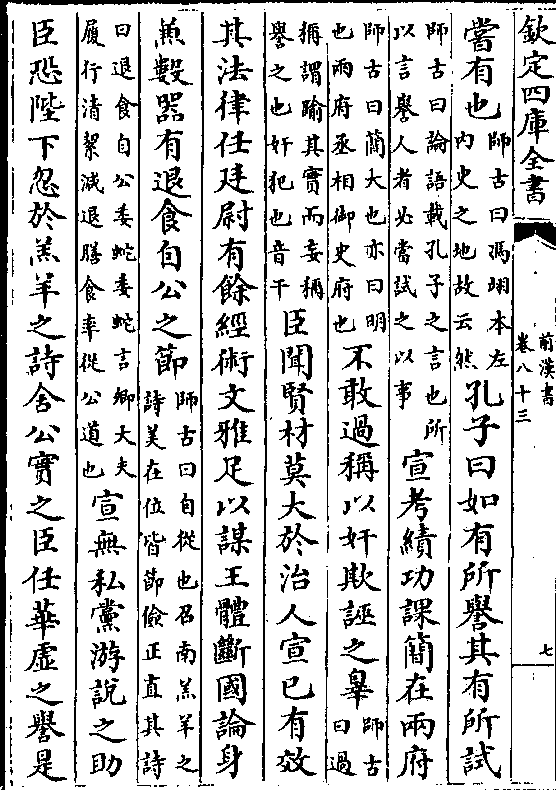 欽定四庫全書
前漢書
卷八十三
七
嘗有也師古曰馮翊本左内史之地故云然孔子曰如有所譽其有所試
師古曰論語載孔子之言也所以言譽人者必當試之以事宣考績功課簡在兩府
師古曰簡大也亦曰明也兩府丞相御史府也不敢過稱以奸欺誣之辠師古曰過
稱謂踰其實而妄稱譽之也奸犯也音干臣聞賢材莫大於治人宣已有效
其法律任廷尉有餘經術文雅足以謀王體斷國論身
無數器有退食自公之節師古曰自從也召南羔羊之詩美在位皆節儉正直其詩
曰退食自公委蛇委蛇言卿大夫履行清絜減退膳食率從公道也宣無私黨游說之助
臣恐陛下忽於羔羊之詩舍公實之臣任華虛之譽是